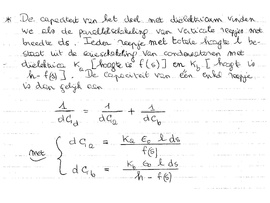 * De capaciteit van het deel met diëlektricum vinden
we als de parallelschakeling van verticale reepjes met
breedte ds. Ieder reepje met totale hoogte h be-
staat uit de serieschakeling van condensatoren met
diëlektrica Ka [hoogte is f(s)] en Kb [hoogte is
h - f(s)]. De capaciteit van één enkel reepje
is dan gelijk aan
1/dCd = 1/dCa + 1/dCb
met { dCa = Ka ε0 l ds / f(s)
dCb = Kb ε0 l ds / h - f(s)